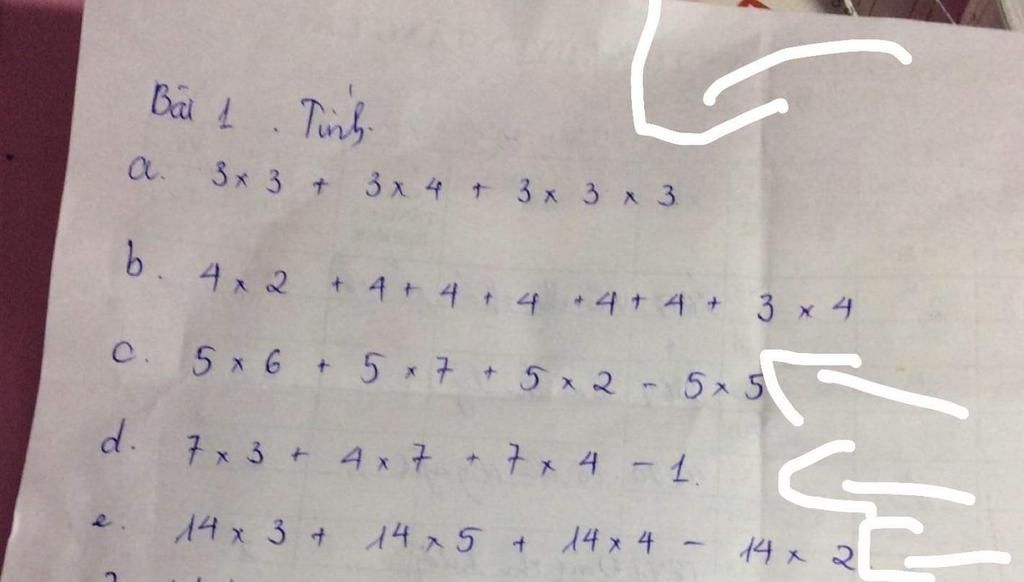 Bài 1. Tính.
a. 3 × 3 + 3 × 4 + 3 × 3 × 3
b. 4 × 2 + 4 + 4 + 4 + 4 + 4 + 3 × 4
c. 5 × 6 + 5 × 7 + 5 × 2 - 5 × 5
d. 7 × 3 + 4 × 7 + 7 × 4 - 1.
e. 14 × 3 + 14 × 5 + 14 × 4 - 14 × 2